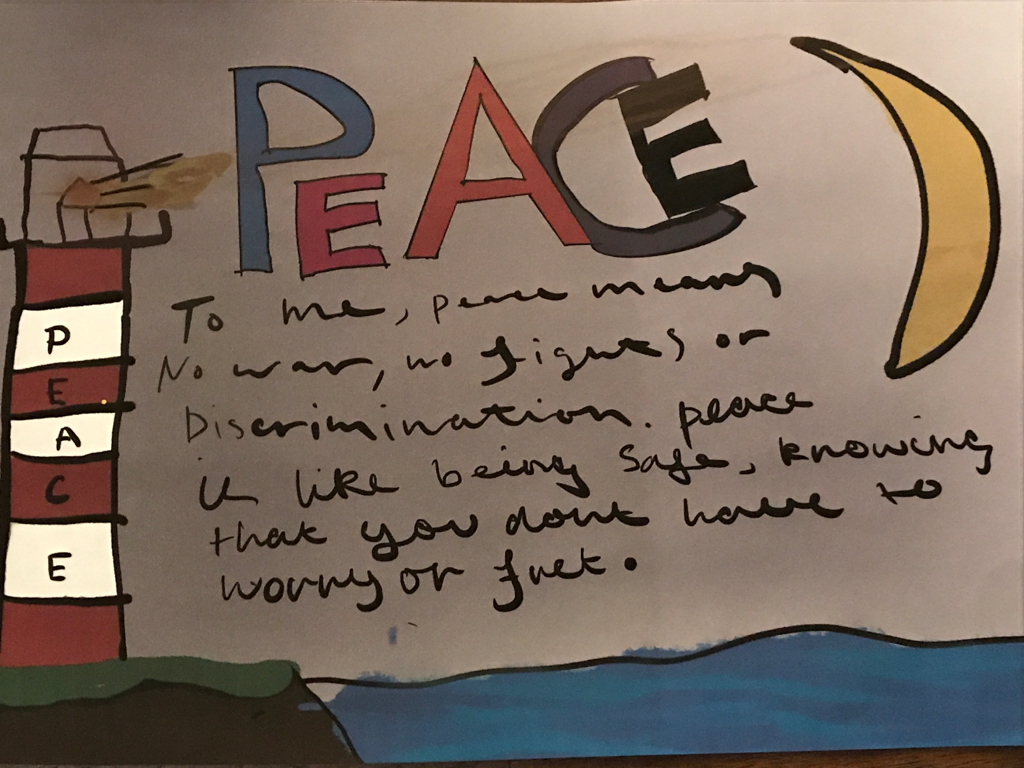 PEACE
P
E
A
C
E
To me, peace means
No war, no fights or
Discrimination. peace
is like being safe, knowing
that you dont have to
worry or fret.